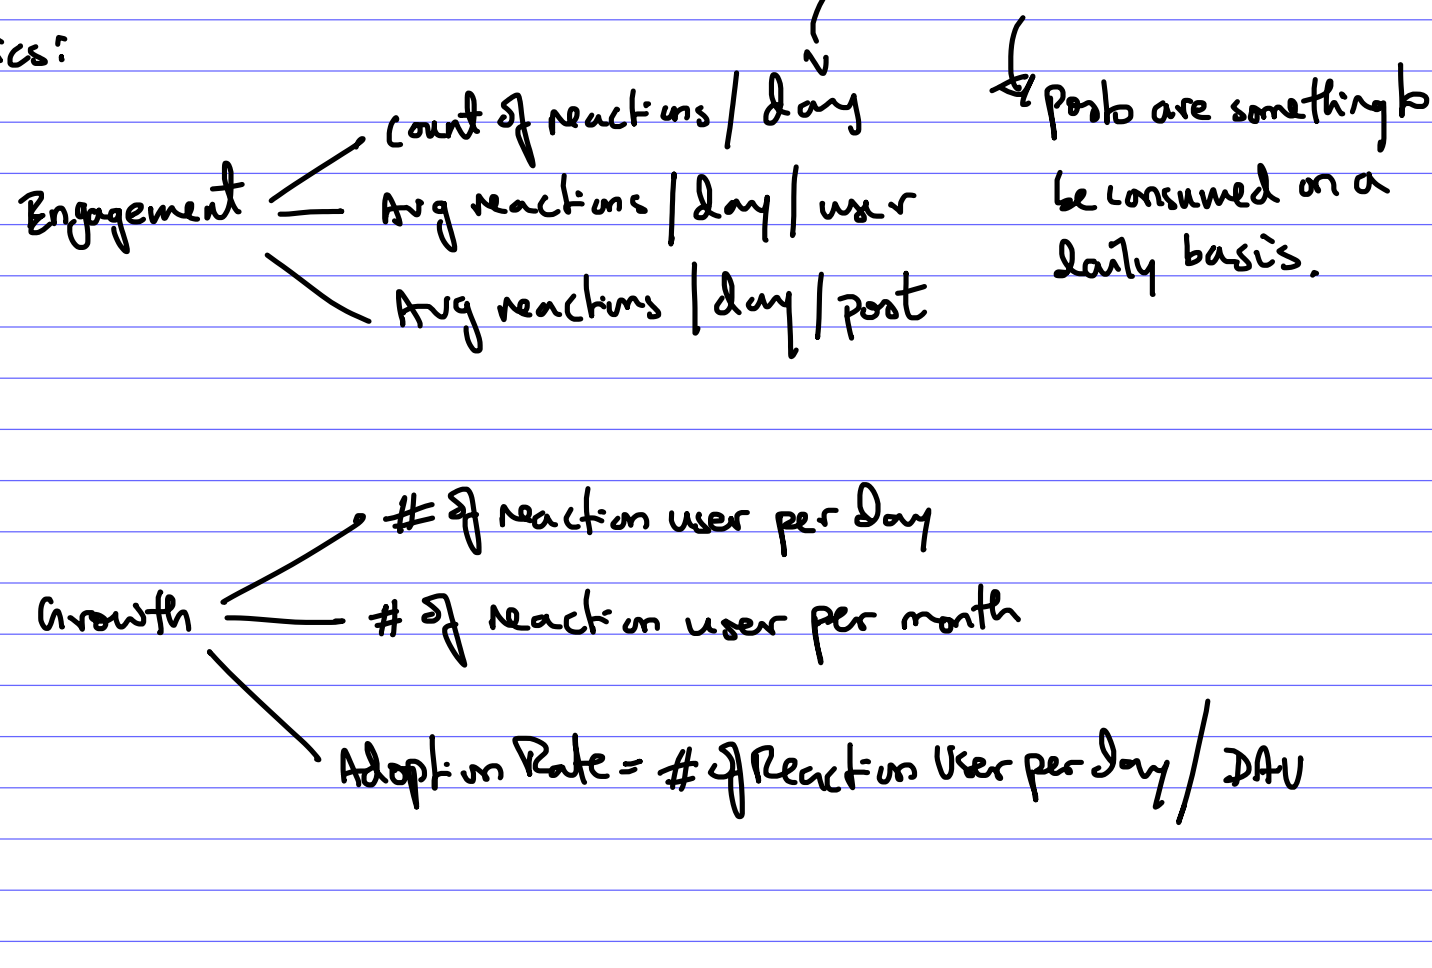 ics:
count of reactions / day
Engagement
Avg reactions / day / user
Avg reactions / day / post
posts are something to
be consumed on a
daily basis.
# of reaction user per day
Growth
# of reaction user per month
Adoption Rate = # of Reaction User per day / DAU